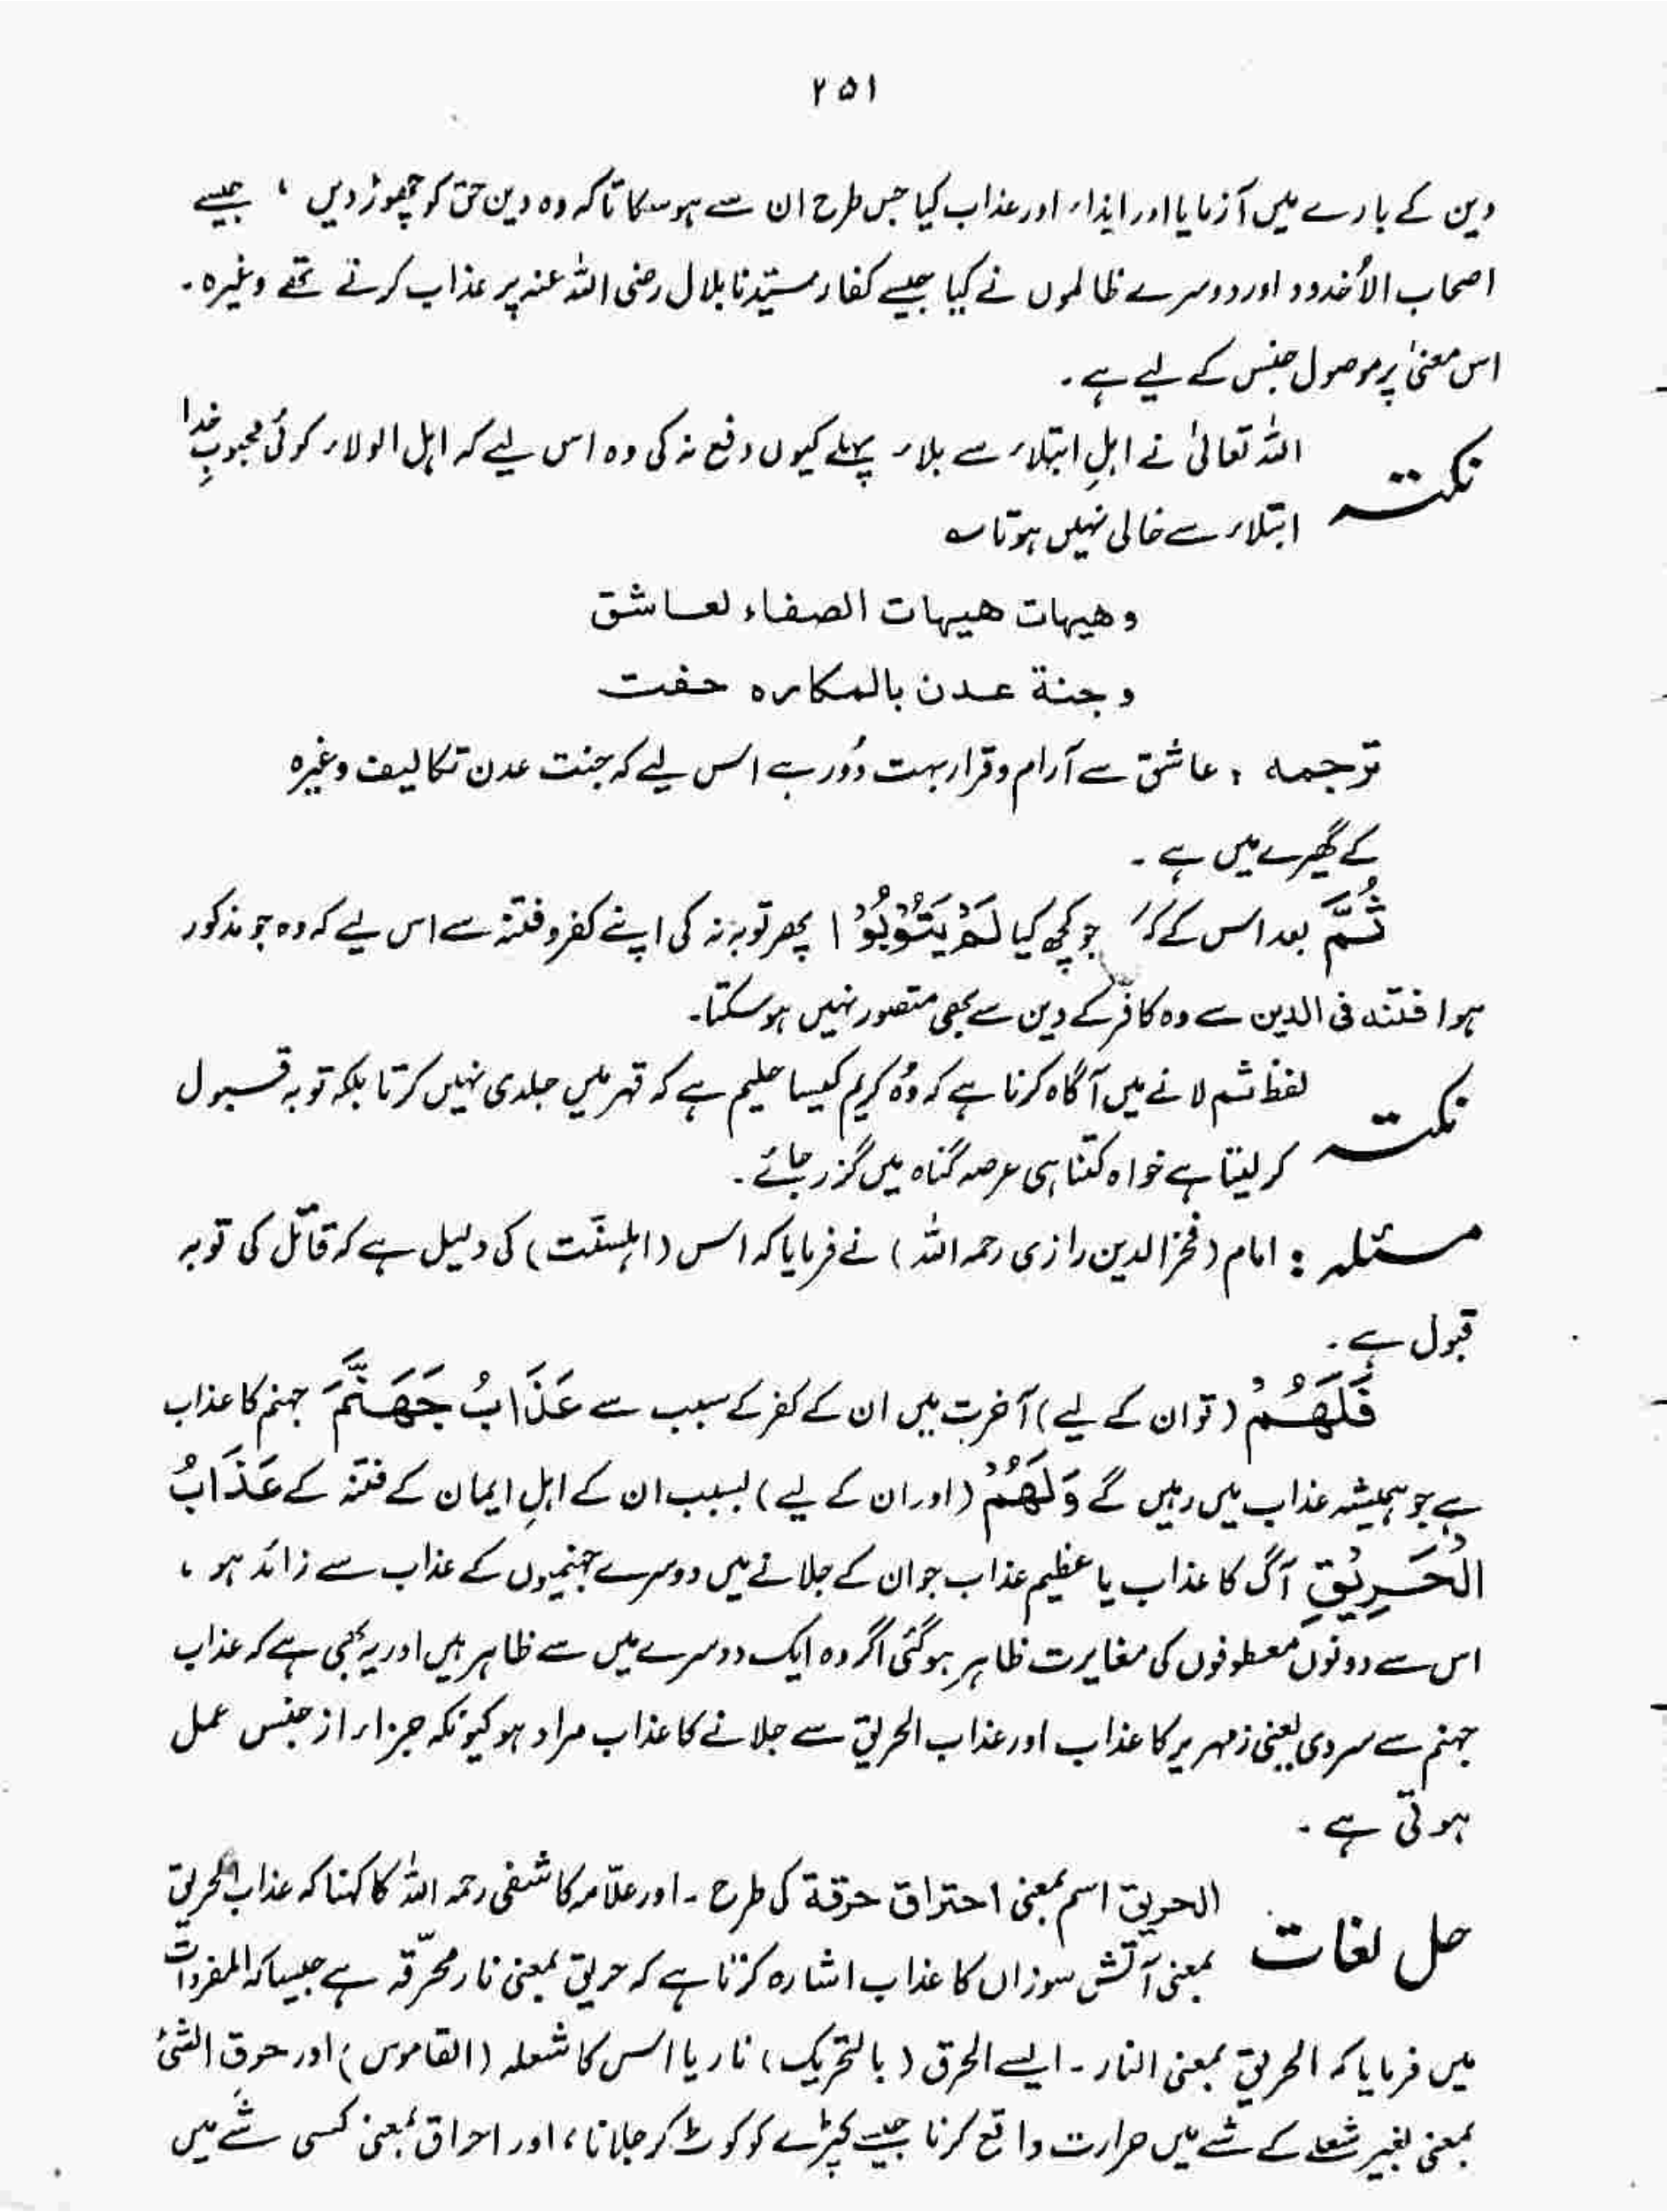 ۲۵۱
دین کے بارے میں آزمایا اور ایذاء اور عذاب کیا جس طرح ان سے ہو سکا تاکہ وہ دین حق کو چھوڑ دیں ، جیسے
اصحاب الاُخدود اور دوسرے ظالموں نے کیا جیسے کفار سیّدنا بلال رضی اللہ عنہ پر عذاب کرتے تھے وغیرہ۔
اس معنیٰ پر موصول جنس کے لیے ہے ۔
نکتہ اللہ تعالیٰ نے اہلِ ابتلاء سے بلاء پہلے کیوں دفع نہ کی وہ اس لیے کہ اہل الولاء کوئی محبوبِ خدا
ابتلاء سے خالی نہیں ہوتا ؎
وهيهات هيهات الصفاء لعاشق
وجنة عدن بالمكاره حفت
ترجمہ : عاشق سے آرام و قرار بہت دُور ہے اس لیے کہ جنت عدن تکالیف وغیرہ
کے گھیرے میں ہے ۔
ثُمَّ بعد اس کے کہ جو کچھ کیا لَمْ يَتُوْبُوْا پھر توبہ نہ کی اپنے کفر و فتنہ سے اس لیے کہ وہ جو مذکور
ہوا فتنہ فی الدین سے وہ کافر کے دین سے بھی متصور نہیں ہو سکتا۔
نکتہ لفظ ثم لانے میں آگاہ کرنا ہے کہ وُہ کریم کیسا حلیم ہے کہ قہر میں جلدی نہیں کرتا بلکہ توبہ قبول
کر لیتا ہے خواہ کتنا ہی عرصہ گناہ میں گزر جائے ۔
مسئلہ : امام (فخرالدین رازی رحمہ اللہ) نے فرمایا کہ اس (اہلسنّت) کی دلیل ہے کہ قاتل کی توبہ
قبول ہے ۔
فَلَهُمْ (تو ان کے لیے) آخرت میں ان کے کفر کے سبب سے عَذَابُ جَهَنَّمَ جہنم کا عذاب
ہے جو ہمیشہ عذاب میں رہیں گے وَلَهُمْ (اور ان کے لیے) بسبب ان کے اہلِ ایمان کے فتنہ کے عَذَابُ
الْحَرِيْقِ آگ کا عذاب یا عظیم عذاب جو ان کے جلانے میں دوسرے جہنمیوں کے عذاب سے زائد ہو ،
اس سے دونوں معطوفوں کی مغایرت ظاہر ہو گئی اگر وہ ایک دوسرے میں سے ظاہر ہیں اور یہ بھی ہے کہ عذاب
جہنم سے سردی یعنی زمہریر کا عذاب اور عذاب الحریق سے جلانے کا عذاب مراد ہو کیونکہ جزاء از جنس عمل
ہوتی ہے ۔
حل لغات الحریق اسم بمعنی احتراق حرقة کی طرح ۔ اور علّامہ کاشفی رحمہ اللہ کا کہنا کہ عذاب الحریق
بمعنی آتش سوزاں کا عذاب اشارہ کرتا ہے کہ حریق بمعنی نار محرّقہ ہے جیسا کہ المفردات
میں فرمایا کہ الحریق بمعنی النار ۔ ایسے الحرق (بالتحریک) نار یا اس کا شعلہ (القاموس) اور حرق الشئ
بمعنی بغیر شعلے کے شے میں حرارت واقع کرنا جیسے کپڑے کو کوٹ کر جلانا ، اور احراق بمعنی کسی شے میں